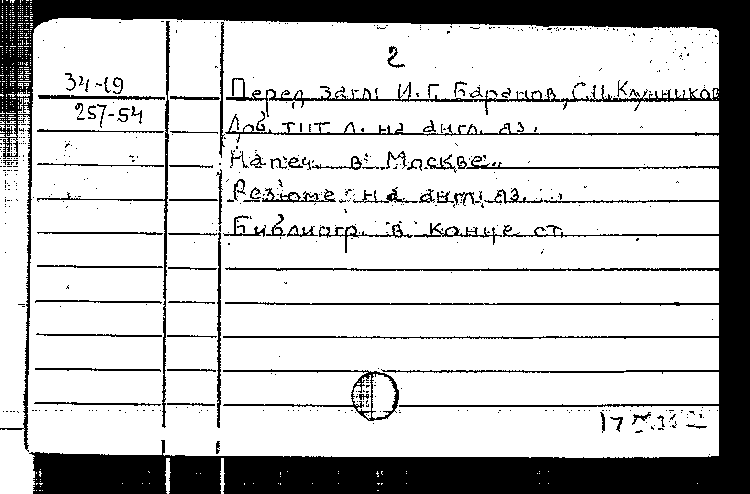 2
34-19
257-54
Перед загл: И.Г. Баранов, С.И. Клунников
Доб. тит. л. на англ. яз.
Напеч. в Москве.
Резюме на англ. яз.
Библиогр. в конце ст.
17